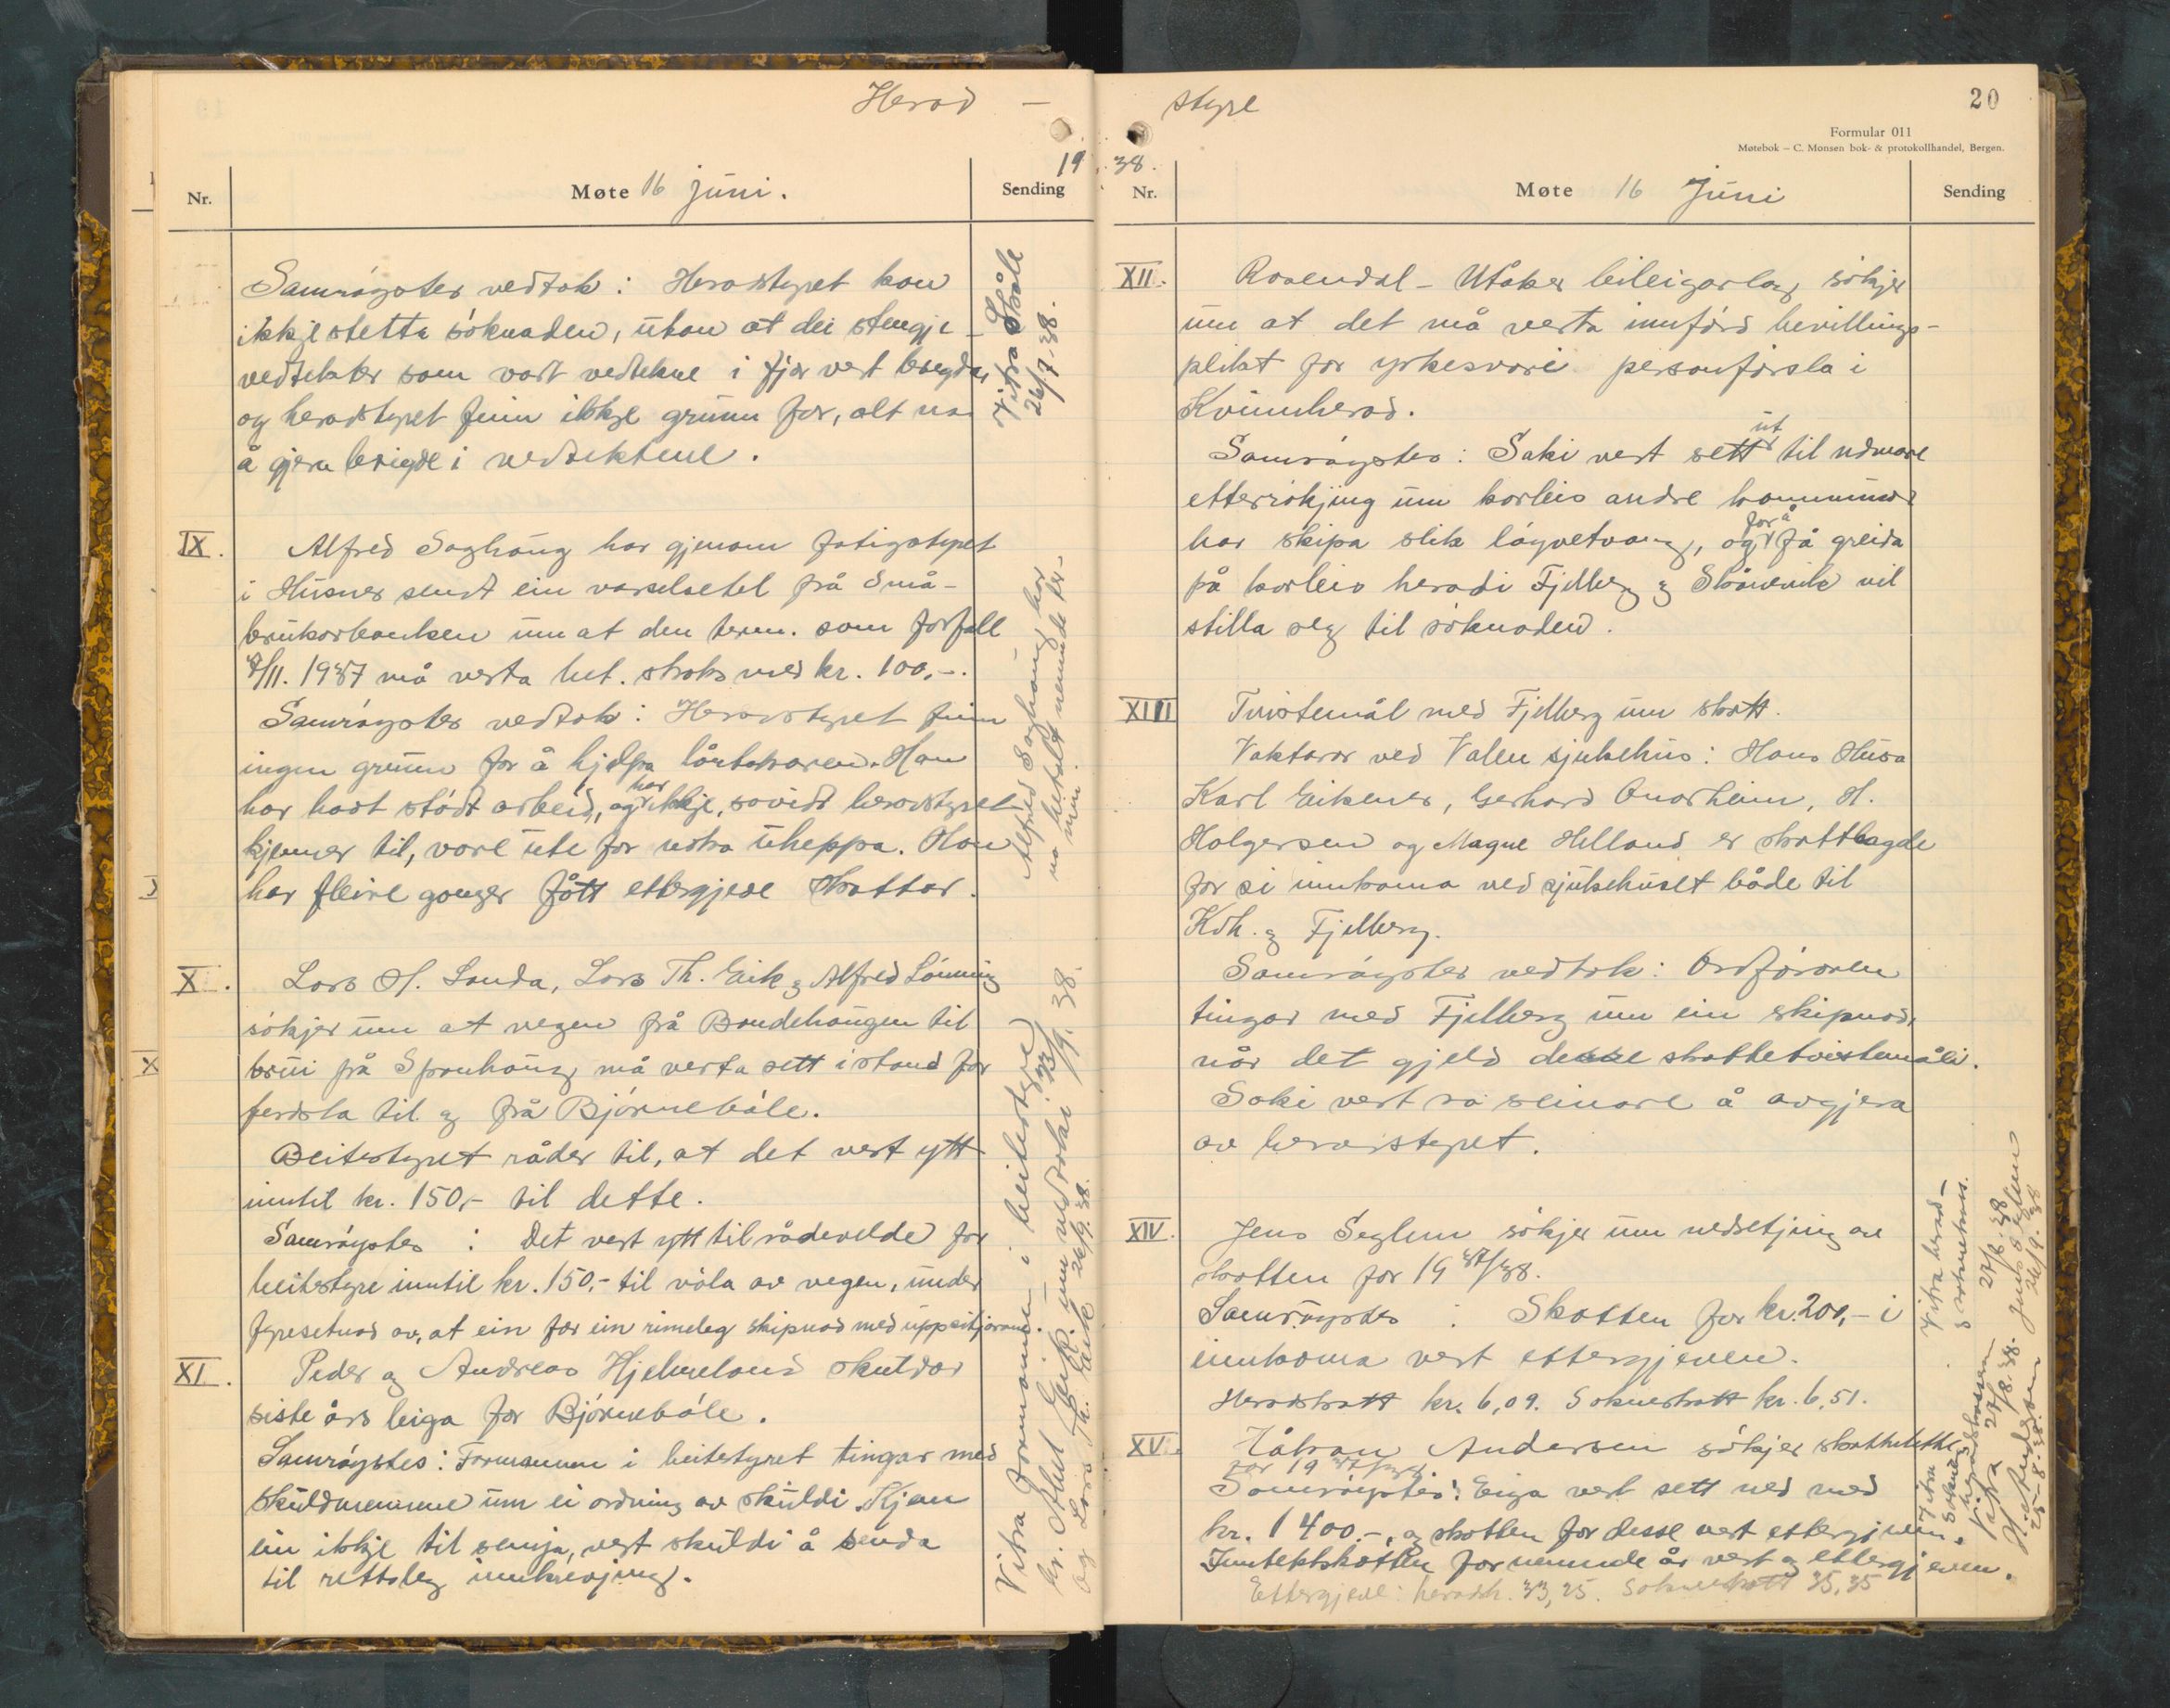 Herad –
19
Nr.
Møte 16 juni.
Sending
Samrøystes vedtok: Heradstyret kan
ikkje stetta søknaden, utan at dei stengje-
vedtekter som vart vedtekne i fjor vert brigda,
og heradstyret finn ikkje grunn for, alt no
å gjera brigde i vedtektene.
Vitra Skåle
26/7.38.
IX.
Alfred Saghaug har gjenom fatigstyret
i Husnes sendt ein varselsetel frå Små-
brukarbanken um at den term. som forfall
1937 må verta bet. straks med kr. 100,-.
Samrøystes vedtok: Heradstyret finn
ingen grunn for å hjelpa låntakaren. Han
har havt stødt arbeid, og har ikkje, sovidt heradstyret
kjenner til, vore ute for nokon uheppa. Han
har fleire gonger fått ettergjeve skattar.
Alfred Saghaug har
no betalt nemnde ter-
min
X.
Lars H. Landa, Lars Th. Eik og Alfred Lønning
søkjer um at vegen frå Bondehaugen til
brui på Spronhaug må verta sett i stand for
ferdsla til og frå Bjørnebøle.
Beitestyret råder til, at det vert ytt
inntil kr. 150,- til dette.
Samrøystes : Det vert ytt til rådevelde for
beitestyre inntil kr. 150,- til vøla av vegen, under
fyresetnad av, at ein fær ein rimeleg skipnad med uppsitjarane.
XI.
Peder og Andreas Hjelmeland skuldar
siste års leiga for Bjørnebøle.
Samrøystes: Formannen i beitestyret tingar med
skuldmennene um ei ordning av skuldi. Kjem
ein ikkje til semja, vert skuldi å senda
til rettsleg innkrevjing.
Vitra formannen i beitestyre
hr. Eik um vedtaket 38.
og Lars Th. Eik 26/9.38.
styre
20
Formular 011
Møtebok – C. Monsen bok- & protokollhandel, Bergen.
38.
Nr.
Møte 16 Juni
Sending
XII.
Rosendal – Utåker bileigarlag søkjer
um at det må verta innførd bevillings-
plikt for yrkesvori personførsla i
Kvinnherad.
Samrøystes: Saki vert sett ut til nærmare
ettersøkjing um korleis andre kommunar
har skipa slik løyvetvang, og for å få greida
på korleis heradi Fjelberg og Skånevik vil
stilla seg til søknaden.
XIII
Tvistemål med Fjelberg um skatt.
Vaktarar ved Valen sjukehus: Hans Husa
Karl Eikenes, Gerhard Onarheim, H.
Holgersen og Magne Helland er skattlagde
for si inntekt ved sjukehuset både til
Kvh. og Fjelberg.
Samrøystes vedtok: Ordføraren
tingar med Fjelberg um ein skipnad,
når det gjeld desse skattetvistemåli.
Saki vert so seinare å avgjera
av heradstyret.
XIV.
Jens Seglem søkjer um nedsetjing av
skatten for 1937/38.
Samrøystes : Skatten for kr. 200,- i
inntekt vert ettergjeven.
Heradskatt kr. 6,09. Sokneskatt kr. 6,51.
Vitra herad-
27/6.38
Jens Seglem
26/9.38
XV.
Håkon Andersen søkjer skattelette
for 1937/38
Samrøystes: Eiga vert sett ned med
kr. 1400,-, og skatten for desse vert ettergjeven.
Inntektskatten for nemnde år vert og ettergjeven.
Ettergjeve: heradsk. 33,25. Sokneskatt 35,35
Vitra
H. Andersen
25-8-38.